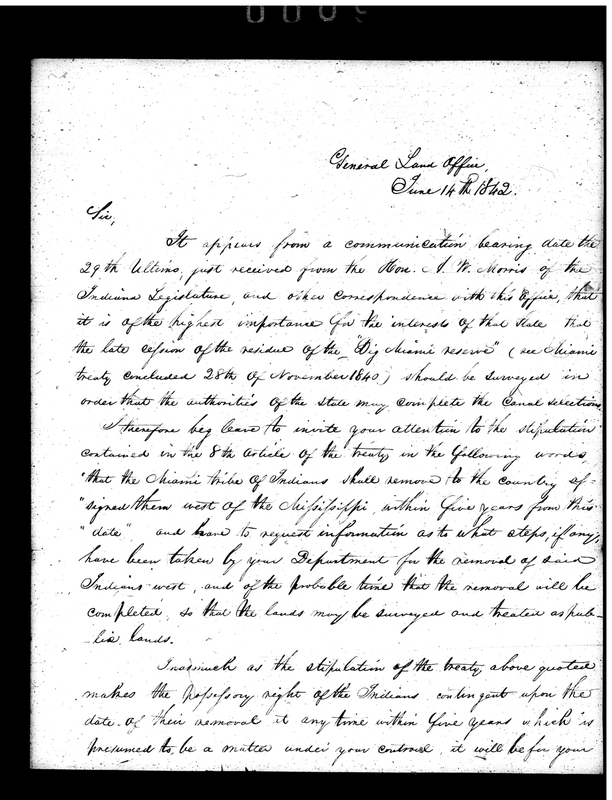 General Land Office,
June 14th 1842.
Sir,
It appears from a communication bearing date the
29th Ultimo, just received from the Hon. A. W. Morris of the
Indiana Legislature, and other correspondence with this Office, that
it is of the highest importance for the interests of that State that
the late cession of the residue of the "Big Miami reserve" (see Miami
treaty concluded 28th of November 1840,) should be surveyed in
order that the authorities of the state may complete the Canal selections.
I therefore beg leave to invite your attention to the stipulation
contained in the 8th article of the treaty in the following words,
"that the Miami tribe of Indians shall remove to the country as-
"signed them west of the Mississippi, within five years from this
"date" and have to request information as to what steps, if any,
have been taken by your Department for the removal of said
Indians west, and of the probable time that the removal will be
completed, so that the lands may be surveyed and treated as pub-
-lic lands.
Inasmuch as the stipulation of the treaty above quoted
makes the possessory right of the Indians contingent upon the
date of their removal at any time within five years which is
presumed to be a matter under your control, it will be for your